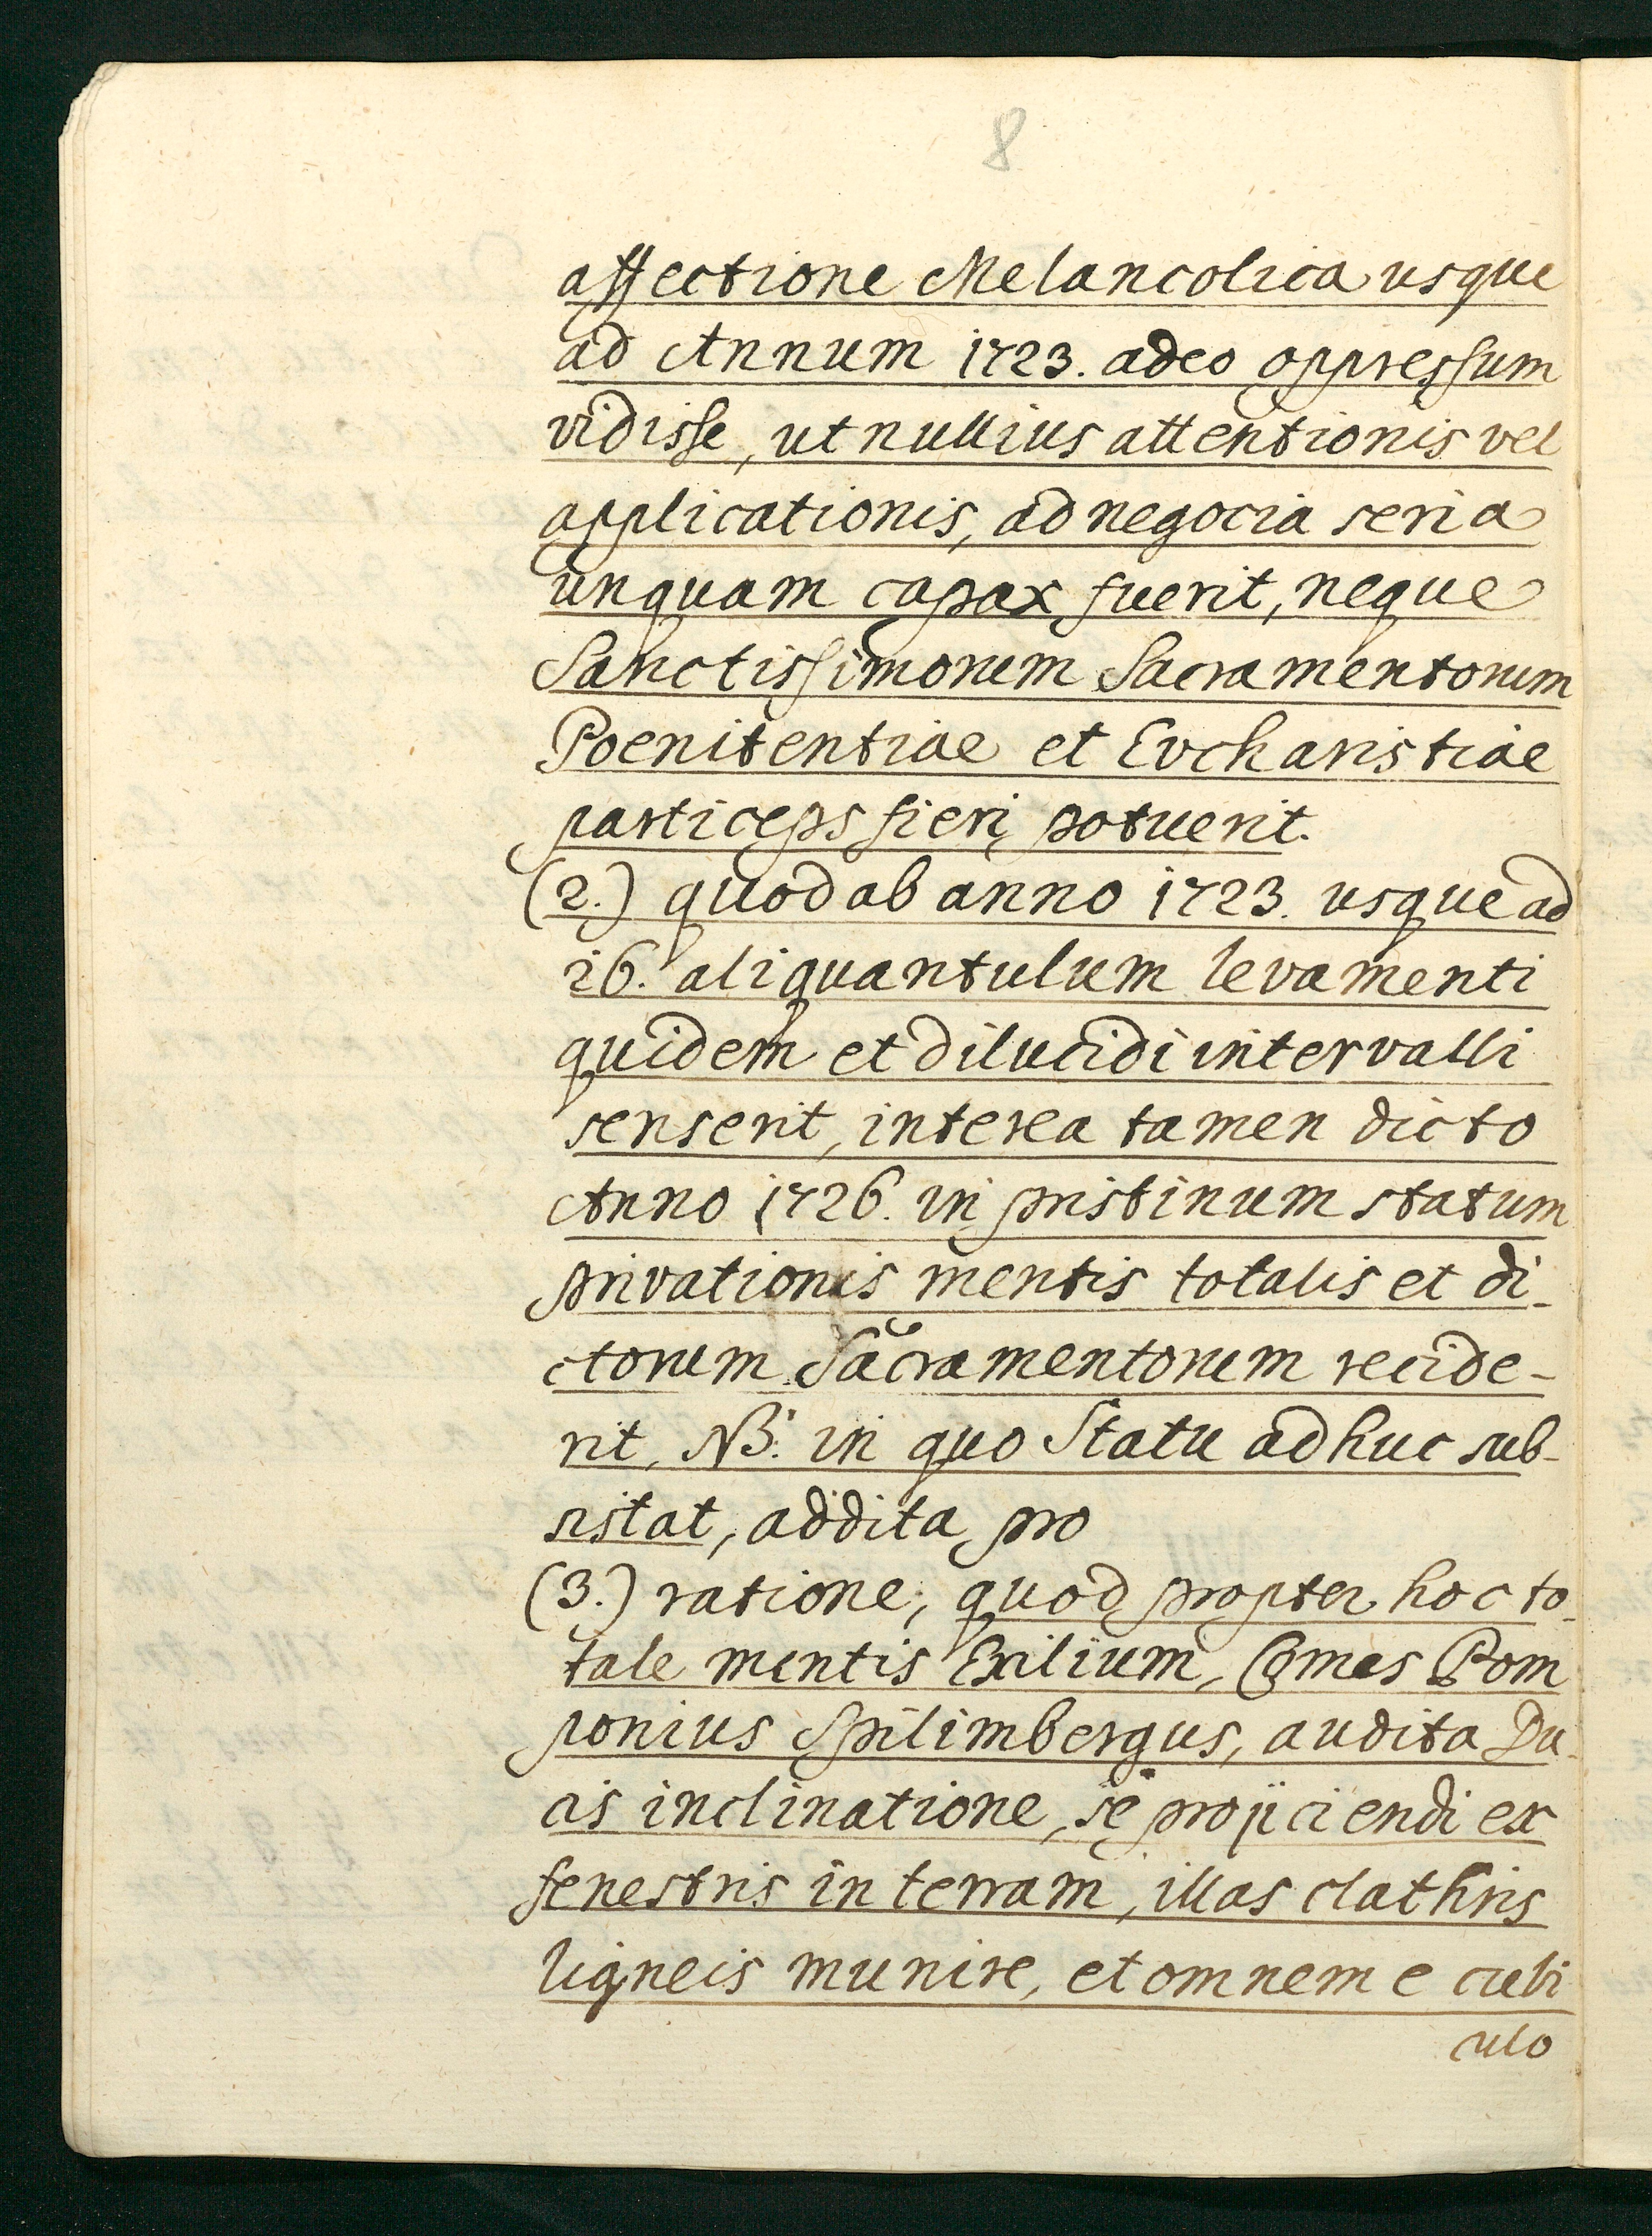 8
affectione Melancolica usque
ad Annum 1723. adeo oppressum
vidisse, ut nullius attentionis vel
applicationis, ad negocia seria
unquam capax fuerit, neque
Sanctissimorum Sacramentorum
Poenitentiae et Evcharistiae
particeps fieri potuerit.
(2.) quod ab anno 1723. usque ad
26. aliquantulum levamenti
quidem et dilucidi intervalli
senserit, interea tamen dicto
Anno 1726. in pristinum statum
privationis mentis totalis et di-
ctorum Sacramentorum recide-
rit, NB. in quo Statu adhuc sub-
sistat, addita pro
(3.) ratione, quod propter hoc to-
tale mentis Exilium, Comes Pom
ponius Spilimbergus, audita Du-
cis inclinatione, se projiciendi ex
fenestris in terram, illas clathris
ligneis munire, et omnem e cubi
culo